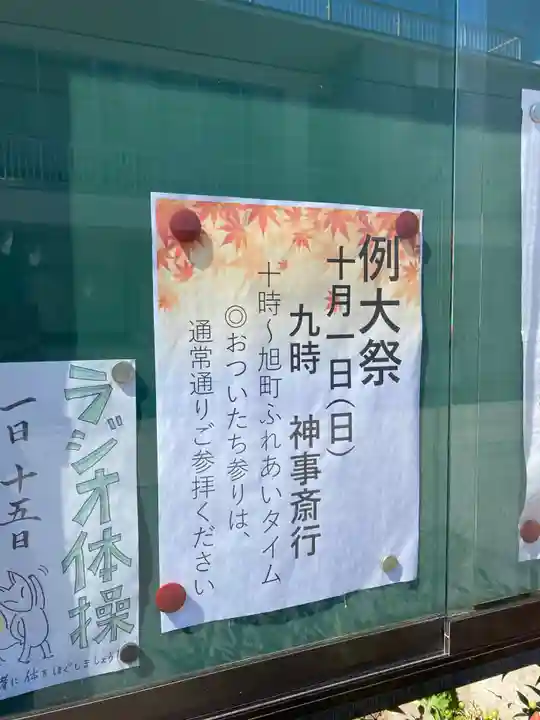 例大祭
十月一日(日)
九時　神事斎行
十時～旭町ふれあいタイム
◎おついたち参りは、
通常通りご参拝ください
ラジオ体操
一日 十五日
に体をほぐしましょう!